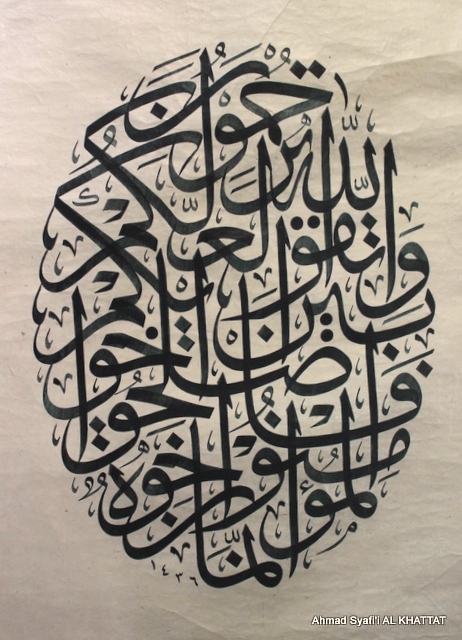 إنما المؤمنون إخوة
فأصلحوا بين أخويكم
واتقوا الله لعلكم ترحمون
١٤٣٦
Ahmad Syafi'i AL KHATTAT